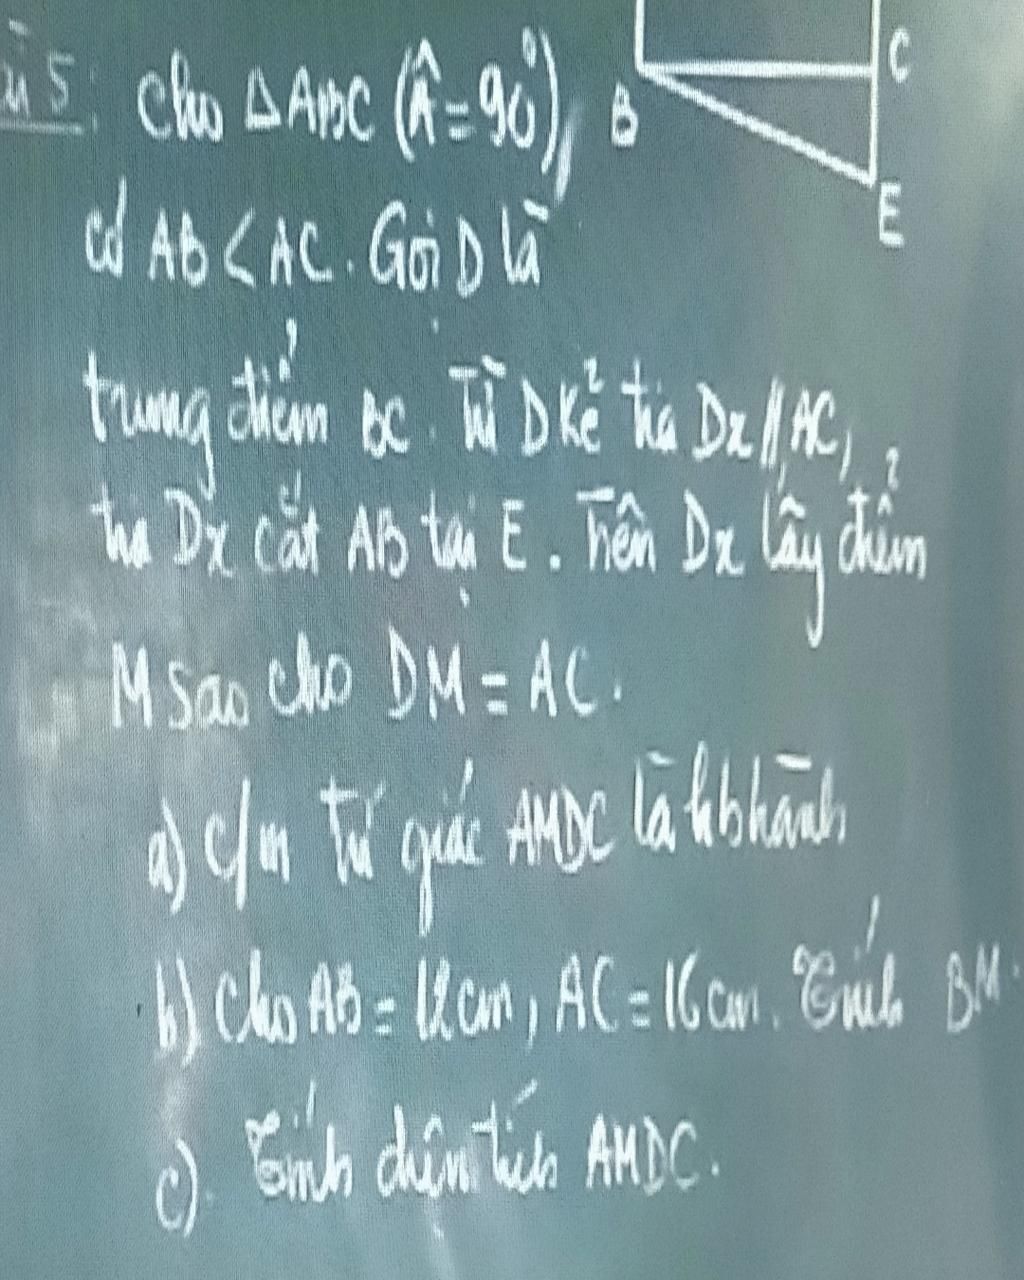 5: Cho ΔABC (Â = 90°), B
C
E
có AB < AC. Gọi D là
trung điểm BC. Từ D kẻ tia Dx // AC,
tia Dx cắt AB tại E. Trên Dx lấy điểm
M sao cho DM = AC.
a) C/m tứ giác AMDC là hbhành
b) Cho AB = 12cm, AC = 16cm. Tính BM.
c). Tính diện tích AMDC.